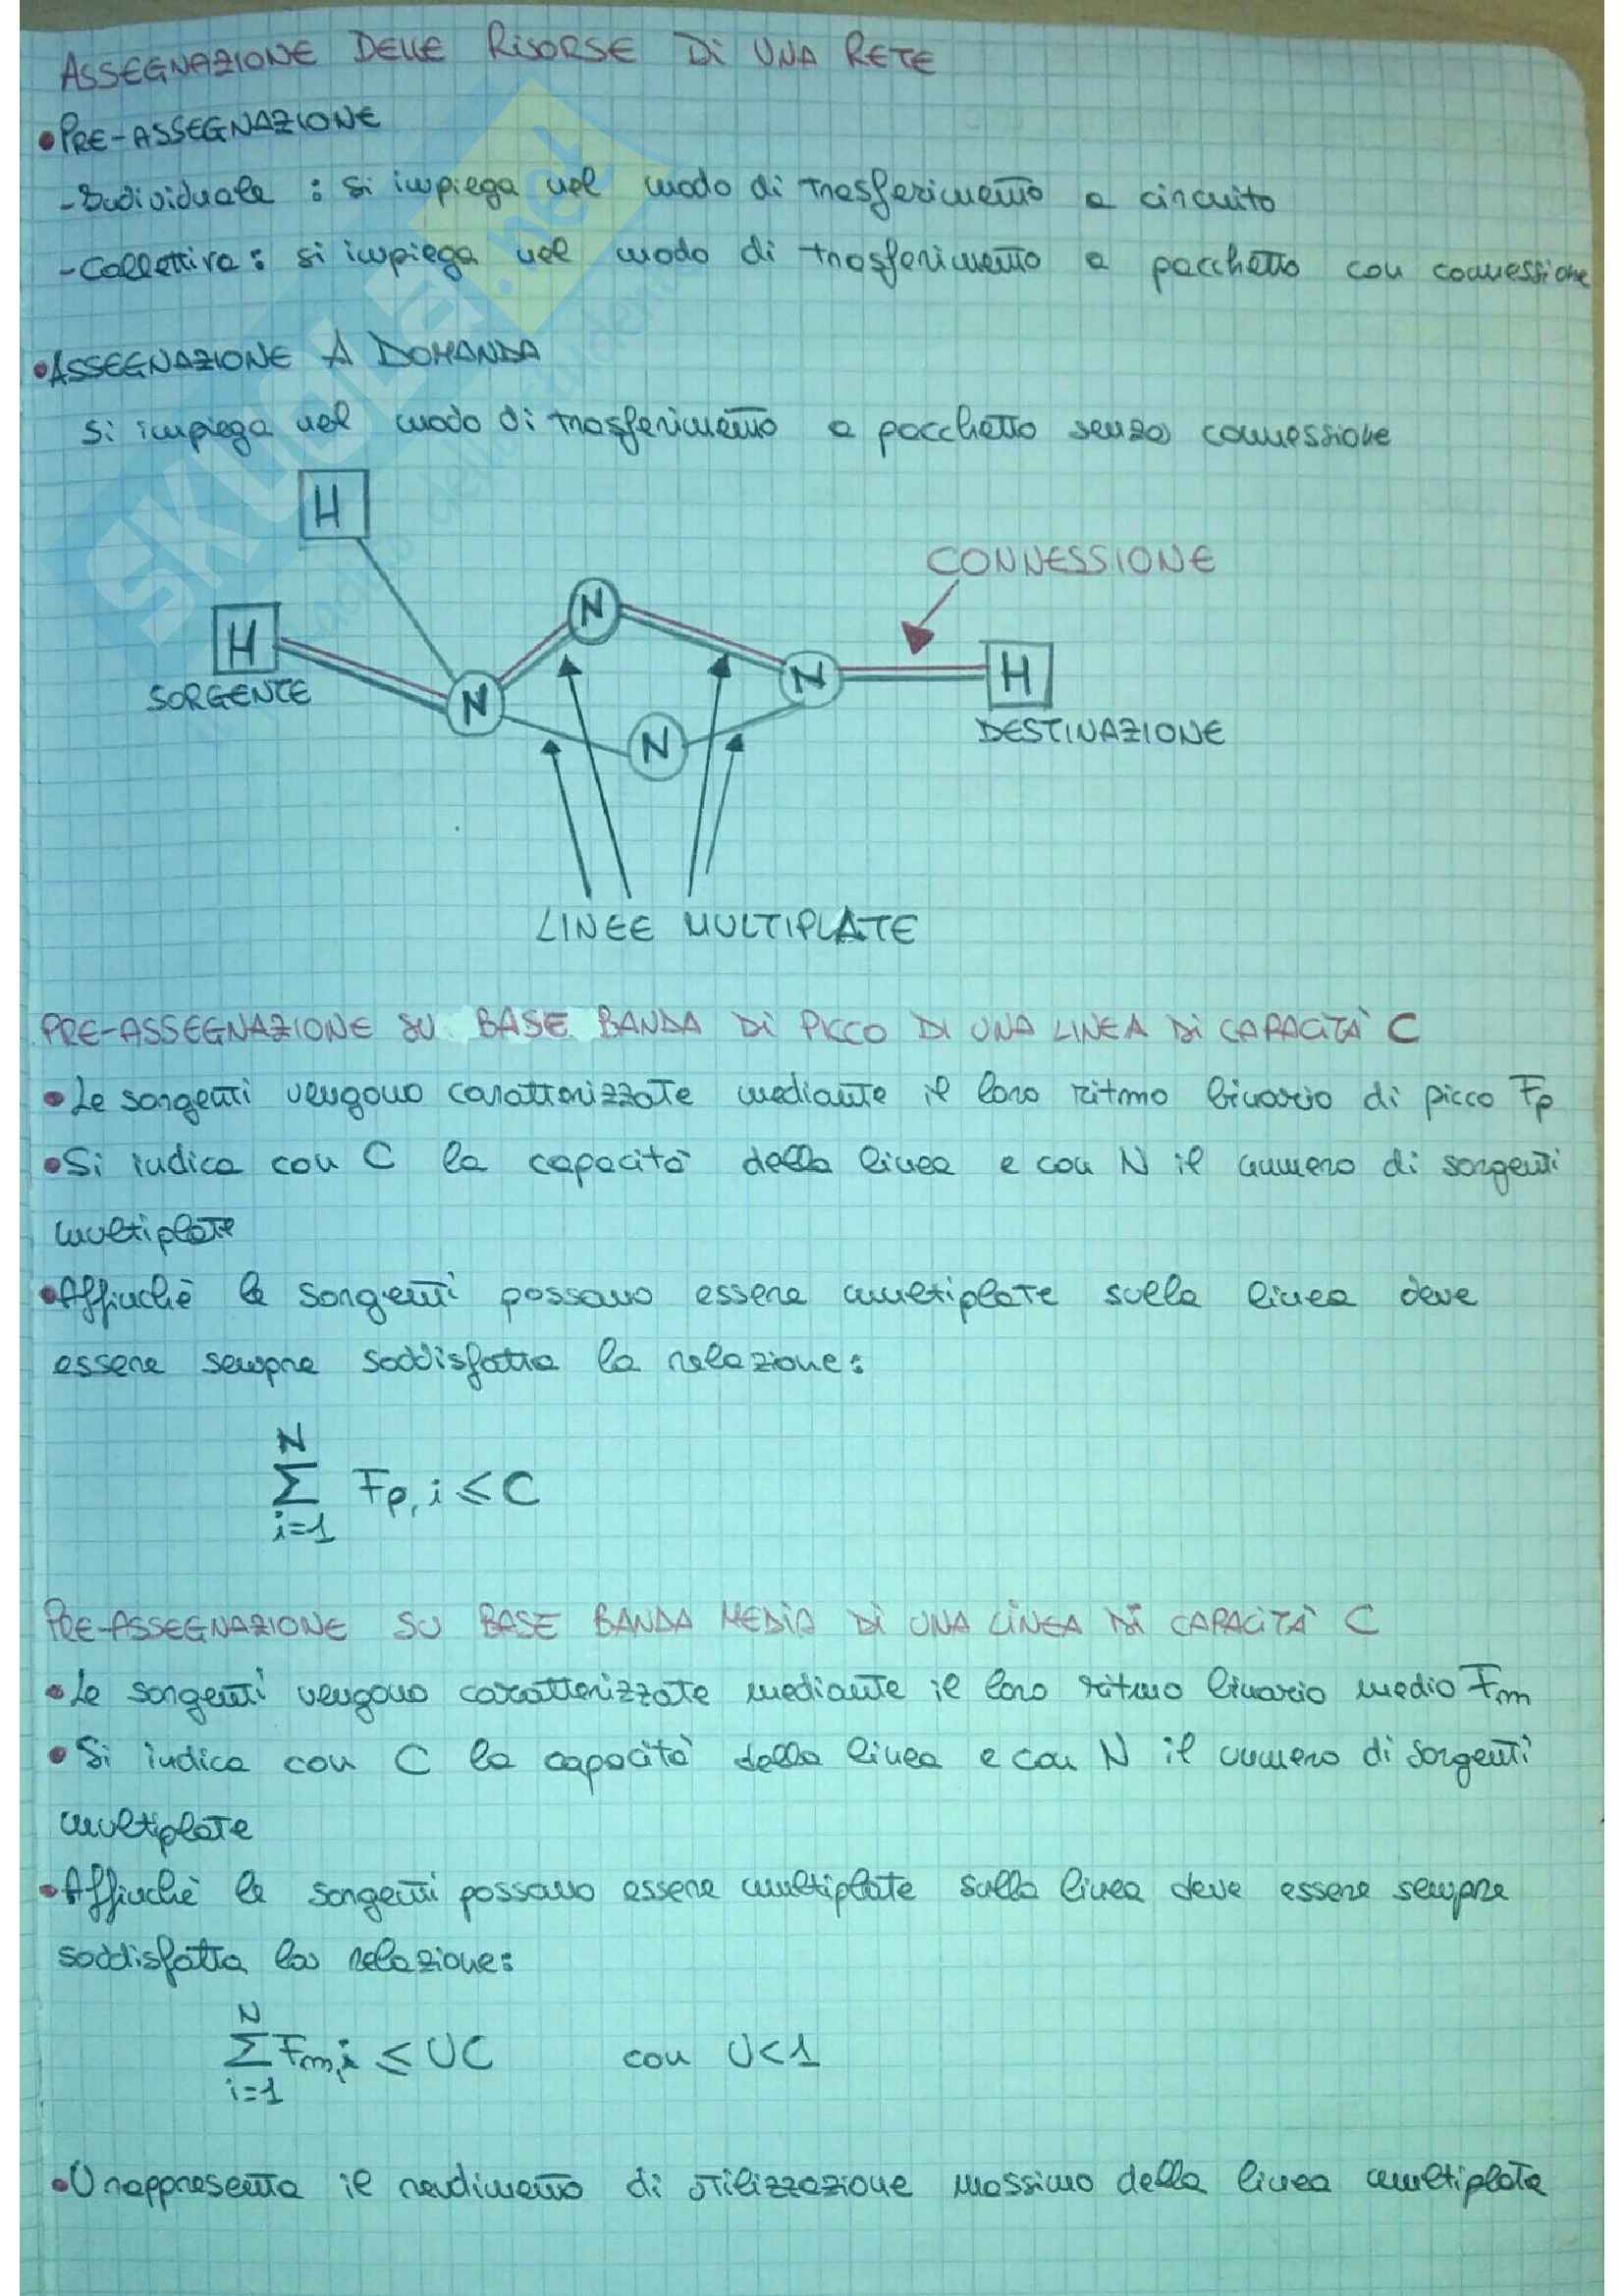 ASSEGNAZIONE DELLE RISORSE DI UNA RETE
• PRE-ASSEGNAZIONE
- Individuale : si impiega nel modo di trasferimento a circuito
- Collettiva : si impiega nel modo di trasferimento a pacchetto con connessione
• ASSEGNAZIONE A DOMANDA
si impiega nel modo di trasferimento a pacchetto senza connessione
H
CONNESSIONE
N
H
N
H
SORGENTE
N
N
DESTINAZIONE
LINEE MULTIPLATE
PRE-ASSEGNAZIONE SU BASE BANDA DI PICCO DI UNA LINEA DI CAPACITÀ C
• Le sorgenti vengono caratterizzate mediante il loro ritmo binario di picco Fp
• Si indica con C la capacità della linea e con N il numero di sorgenti
multiplate
• Affinchè le sorgenti possano essere multiplate sulla linea deve
essere sempre soddisfatta la relazione:
N
Σ Fp,i ≤ C
i=1
PRE-ASSEGNAZIONE SU BASE BANDA MEDIA DI UNA LINEA DI CAPACITÀ C
• Le sorgenti vengono caratterizzate mediante il loro ritmo binario medio Fm
• Si indica con C la capacità della linea e con N il numero di sorgenti
multiplate
• Affinchè le sorgenti possano essere multiplate sulla linea deve essere sempre
soddisfatta la relazione:
N
Σ Fm,i ≤ UC con U<1
i=1
• U rappresenta il rendimento di utilizzazione massimo della linea multiplata
SKUOLa.net